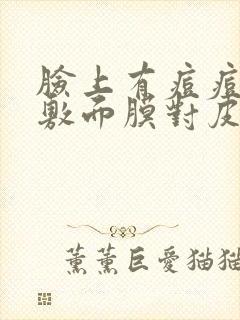 臉上有痘痘
敷面膜對皮
薰薰巨愛猫猫